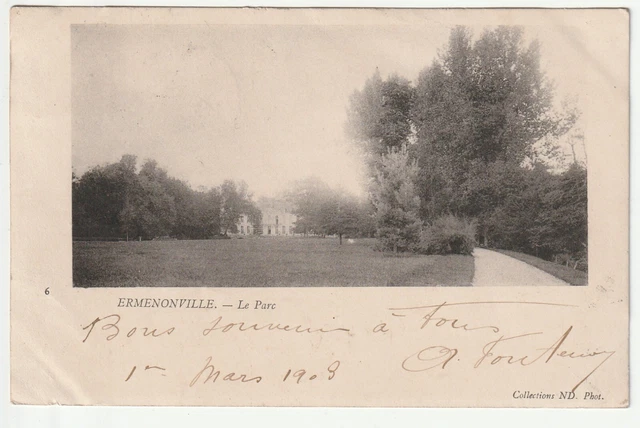 6
ERMENONVILLE. — Le Parc
Bons souvenirs à Tous
1er Mars 1903
Collections ND. Phot.